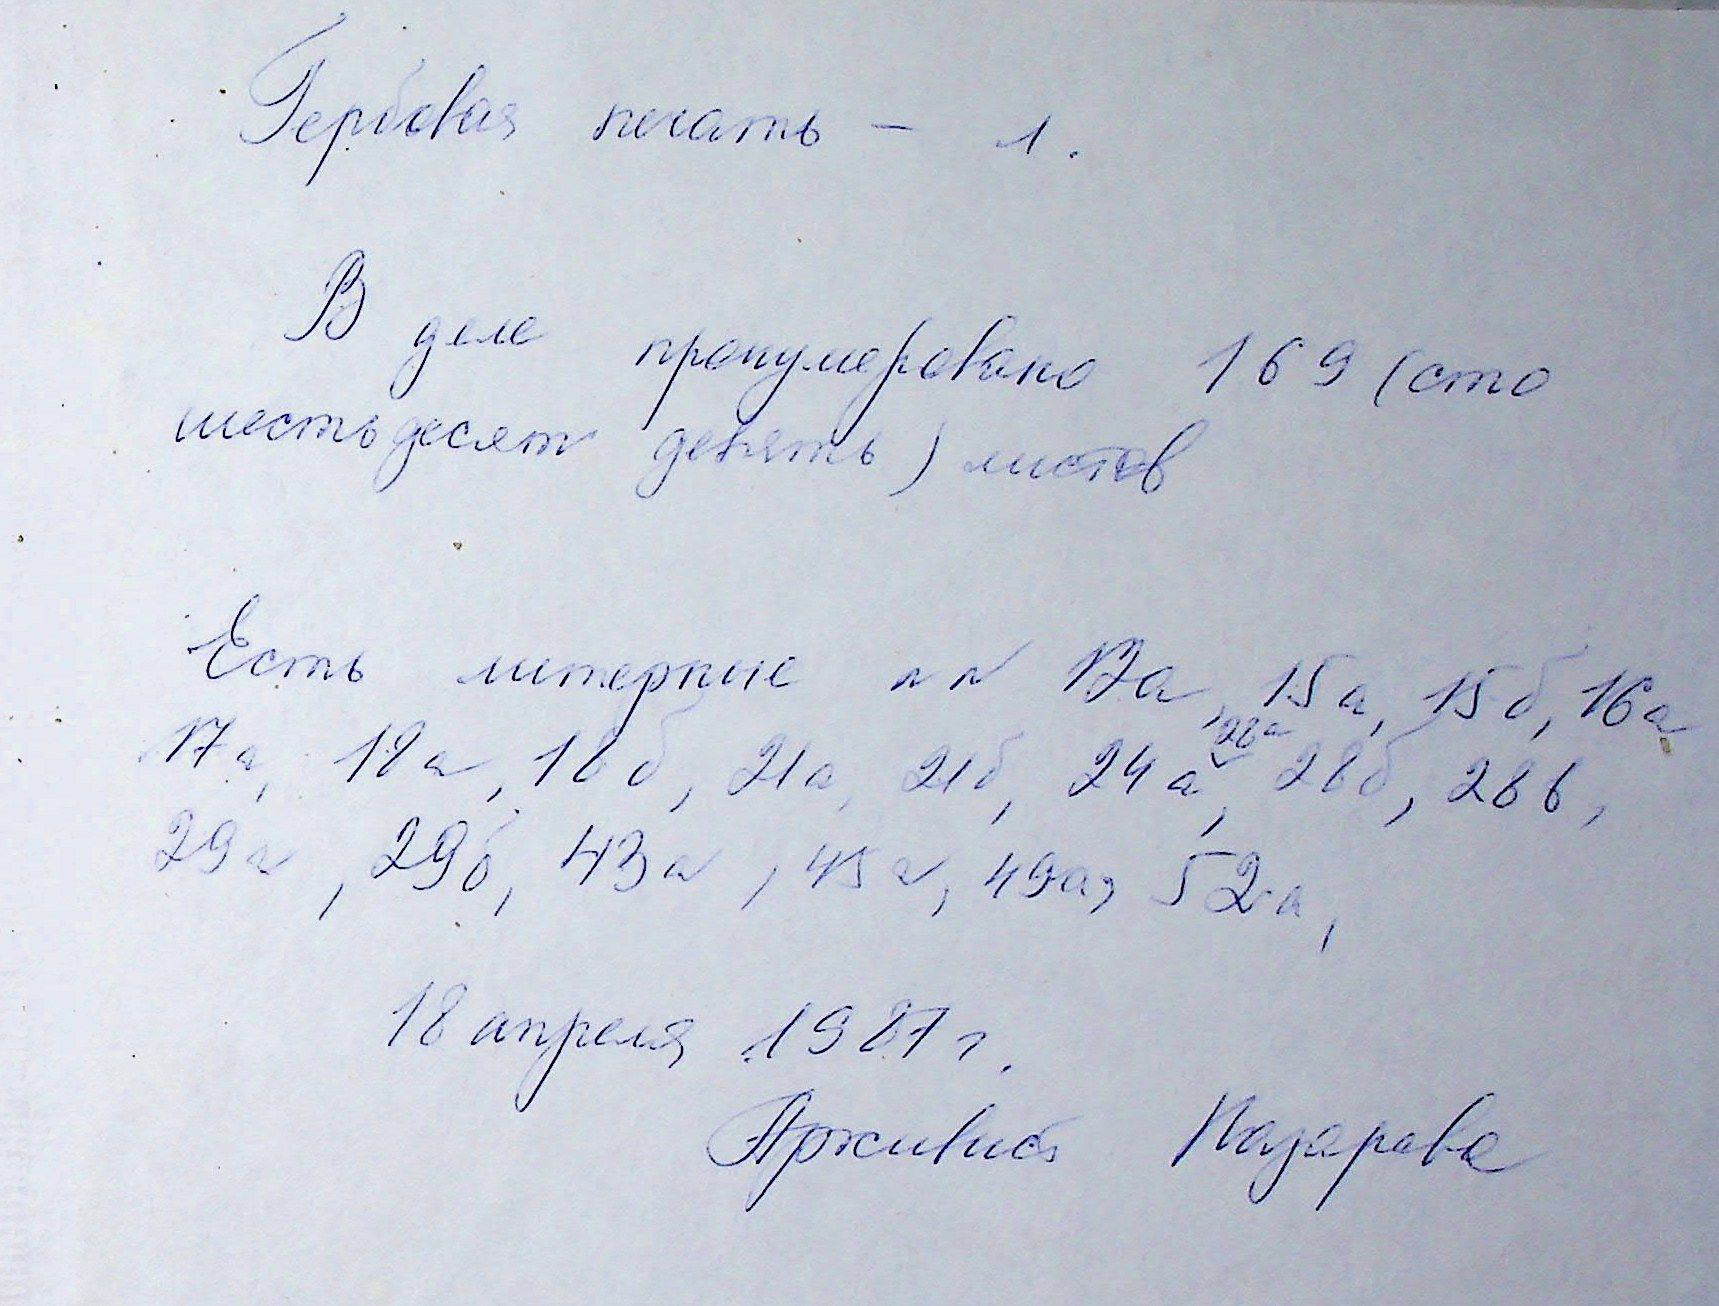 Гербовая печать – 1.
В деле пронумеровано 169 (сто
шестьдесят девять) листов
Есть литерные NN 13а, 15а, 15б, 16а
28а
17а, 18а, 18б, 21а, 21б, 24а, 28б, 28в,
29а, 29б, 43а, 45а, 49а, 52а,
18 апреля 1987 г.
Архивист Назарова